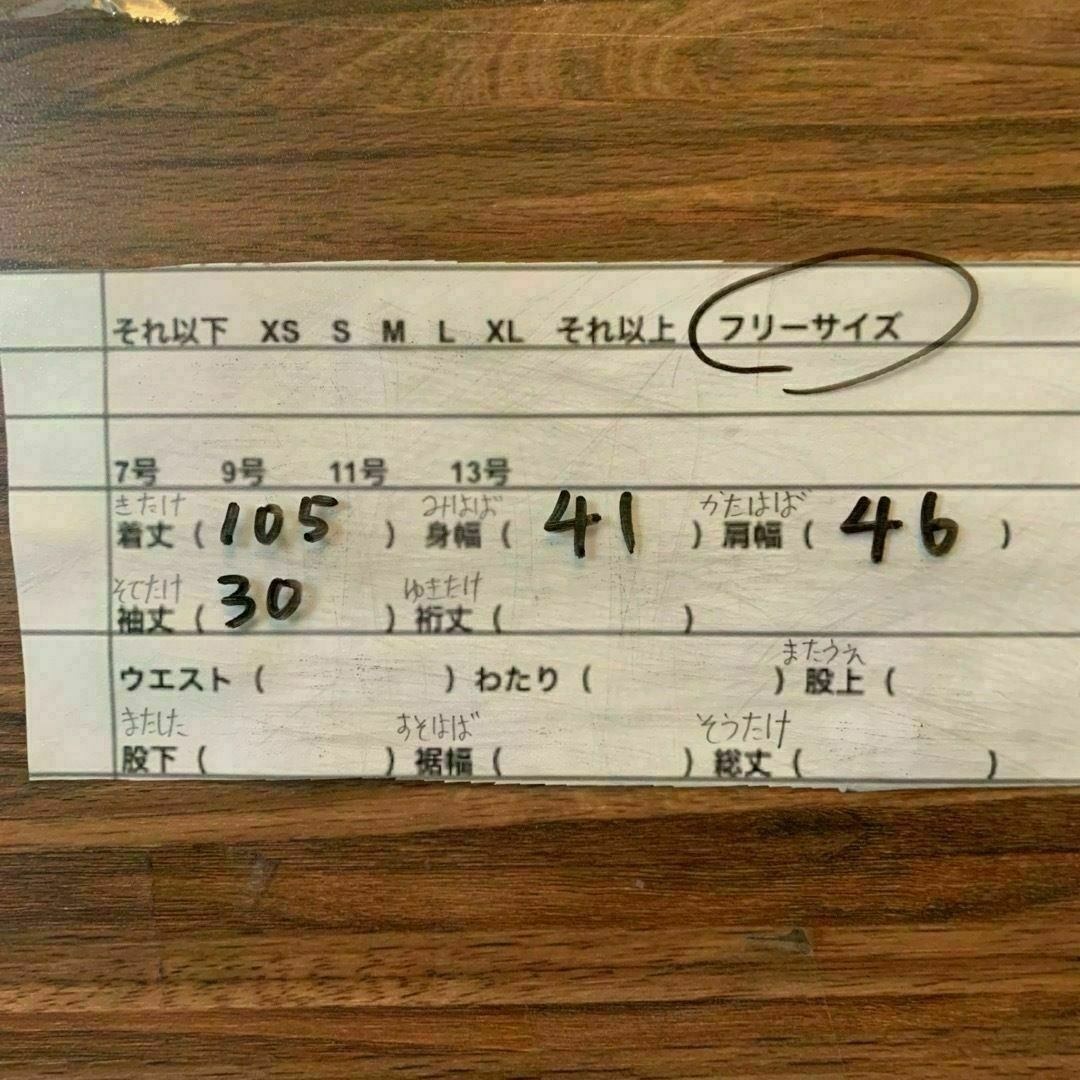 それ以下 XS S M L XL それ以上 フリーサイズ
7号 9号 11号 13号
きたけ みはば かたはば
着丈 ( 105 ) 身幅 ( 41 ) 肩幅 ( 46 )
そでたけ ゆきたけ
袖丈 ( 30 ) 裄丈 ( )
またうえ
ウエスト ( ) わたり ( ) 股上 (
またした すそはば そうたけ
股下 ( ) 裾幅 ( ) 総丈 ( )